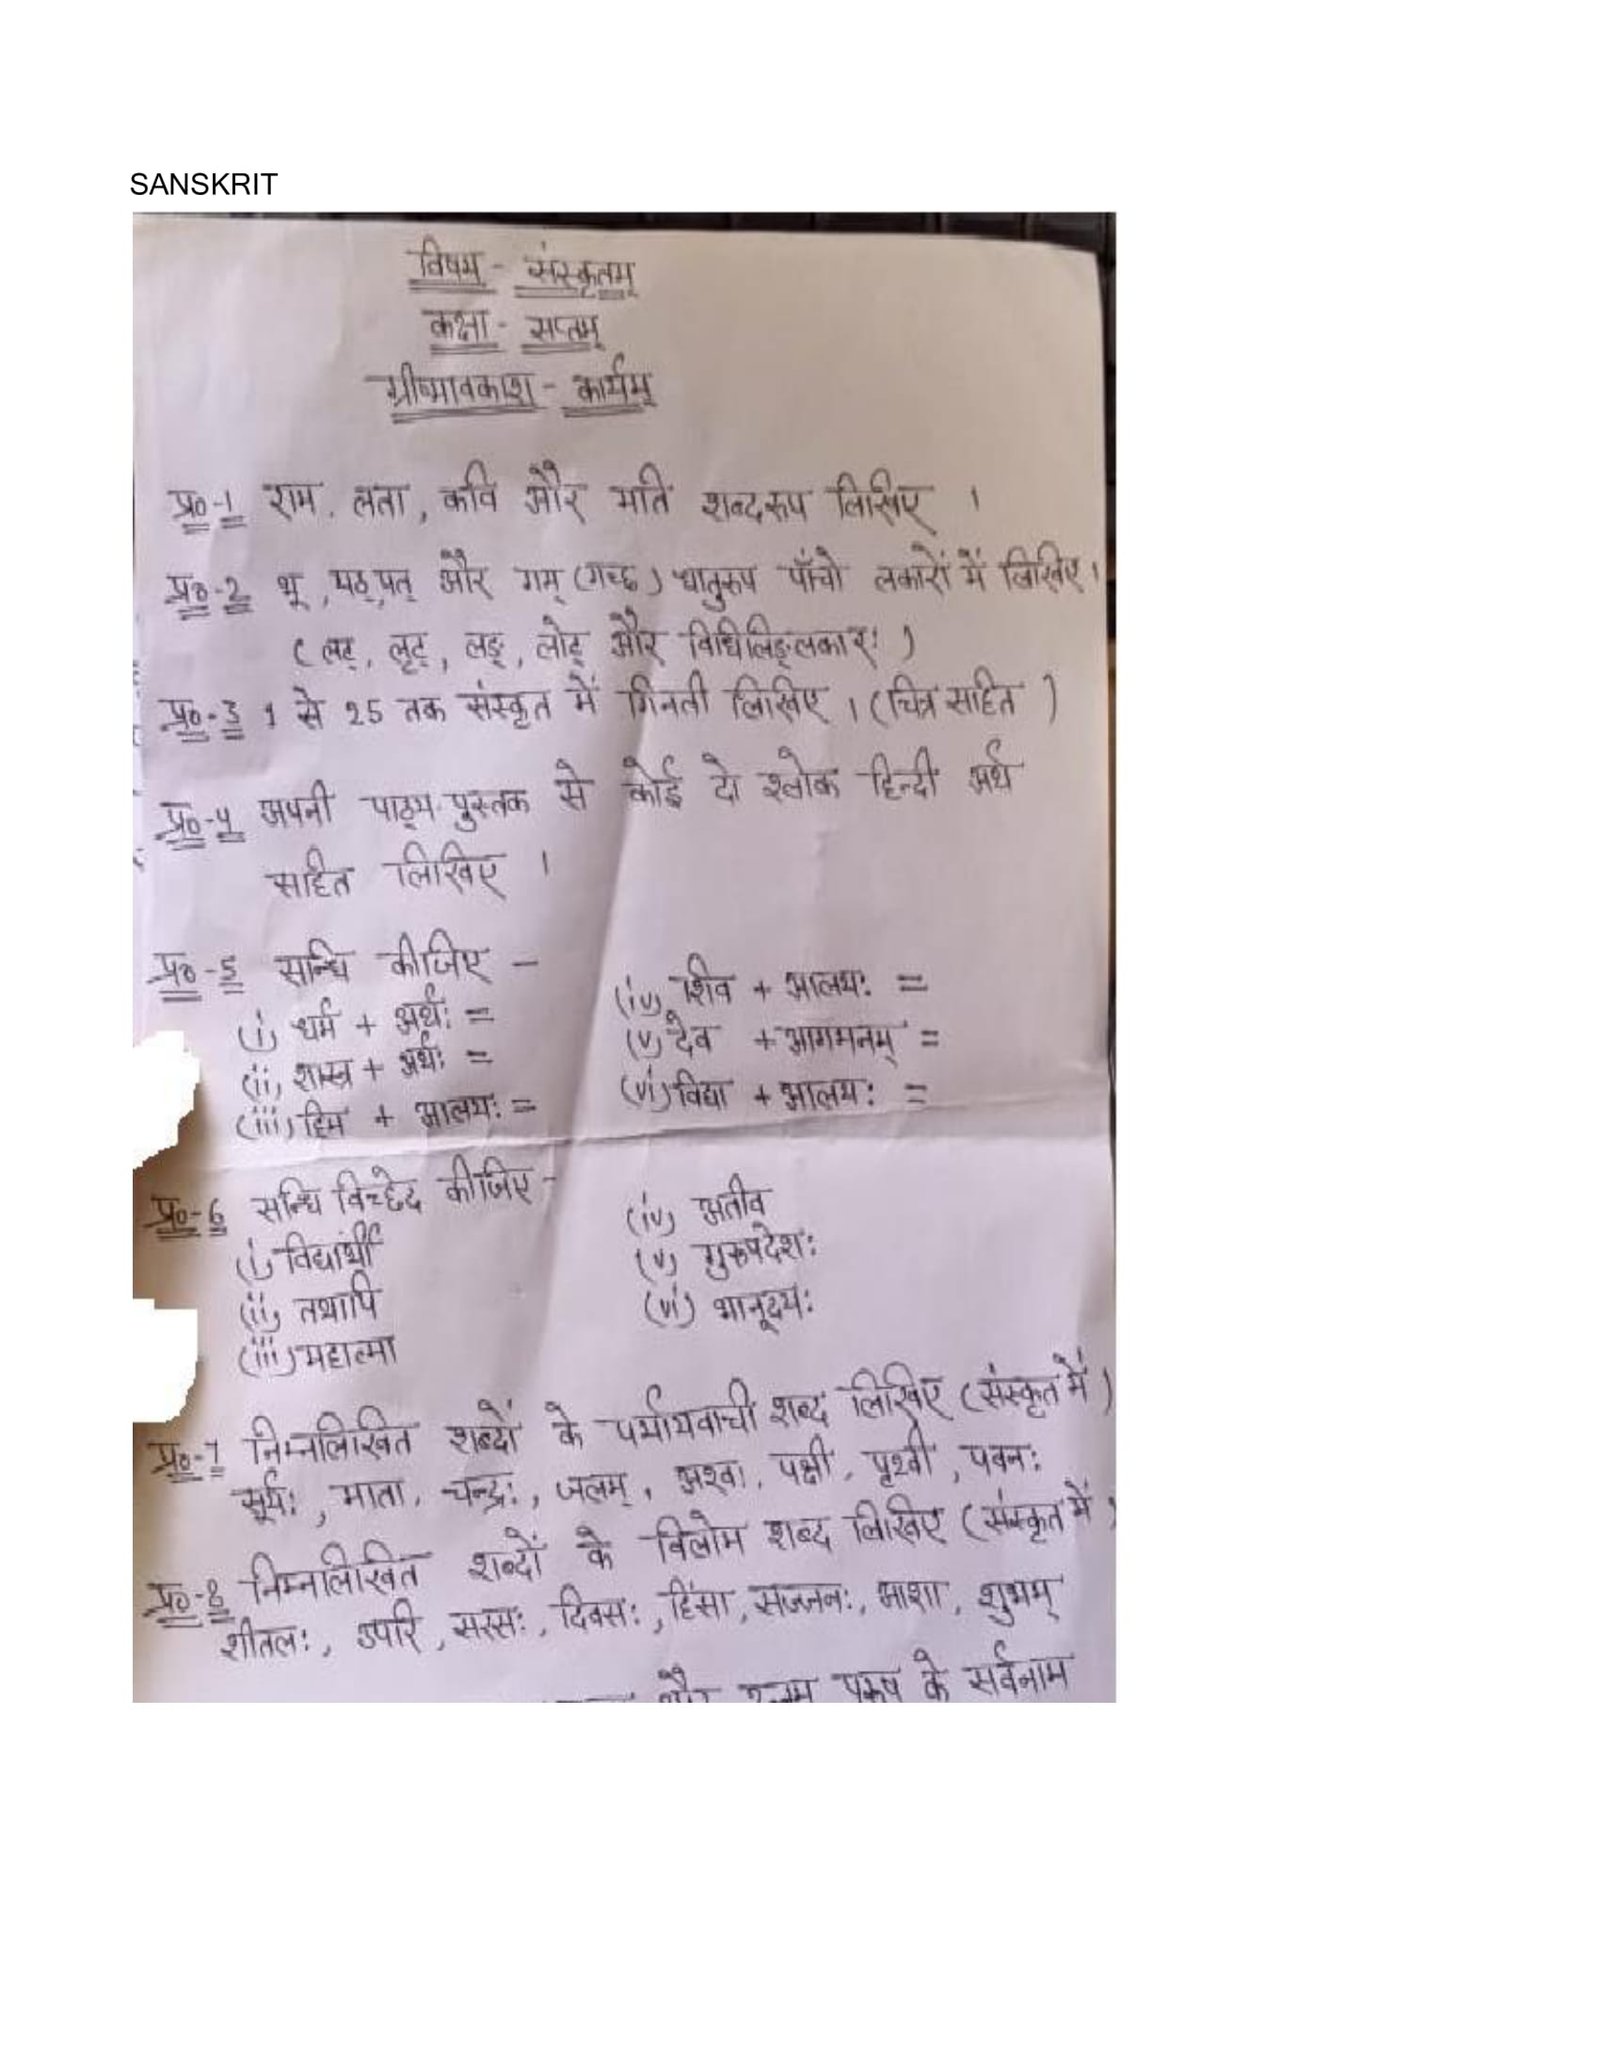 SANSKRIT
विषय - संस्कृतम्
कक्षा - सप्तम्
ग्रीष्मावकाश - कार्यम्
प्र०-1 राम, लता, कवि और मति शब्दरूप लिखिए ।
प्र०-2 भू, पठ्, पत् और गम् (गच्छ) धातुरूप पाँचो लकारों में लिखिए ।
( लट्, लृट्, लङ्, लोट् और विधिलिङ्लकारः )
प्र०-3 1 से 25 तक संस्कृत में गिनती लिखिए । (चित्र सहित )
प्र०-4 अपनी पाठ्य-पुस्तक से कोई दो श्लोक हिन्दी अर्थ
सहित लिखिए ।
प्र०-5 सन्धि कीजिए -
(i) धर्म + अर्थः =
(ii) शास्त्र + अर्थः =
(iii) हिम + आलयः =
(iv) शिव + आलयः =
(v) देव + आगमनम् =
(vi) विद्या + आलयः =
प्र०-6 सन्धि विच्छेद कीजिए -
(i) विद्यार्थी
(ii) तथापि
(iii) महात्मा
(iv) अतीव
(v) गुरुपदेशः
(vi) भानूदयः
प्र०-7 निम्नलिखित शब्दों के पर्यायवाची शब्द लिखिए (संस्कृत में )
सूर्यः, माता, चन्द्रः, जलम्, अश्वः, पक्षी, पृथ्वी, पवनः
प्र०-8 निम्नलिखित शब्दों के विलोम शब्द लिखिए (संस्कृत में )
शीतलः, उपरि, सरसः, दिवसः, हिंसा, सज्जनः, आशा, शुभम्
और उत्तम पुरुष के सर्वनाम